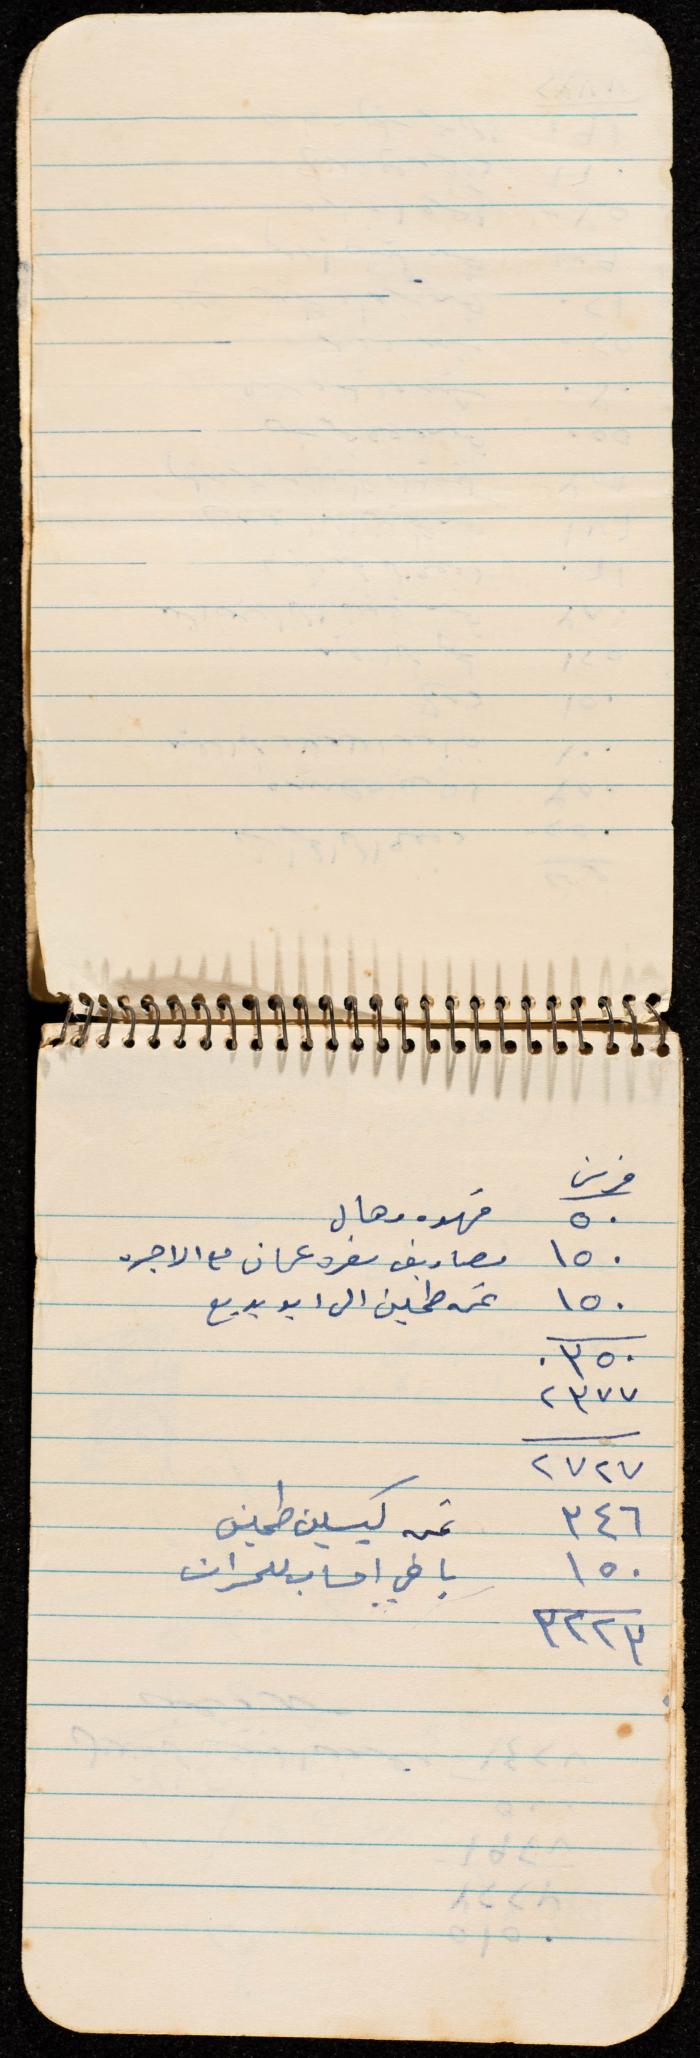 قرش
٥٠ قهوه وهال
١٥٠ مصاريف سفر عمان مع الاجره
١٥٠ ثمن طحين الى ابو بديع
٠٣٥٠
٢٣٧٧
٢٧٢٧
٣٤٦ ثمن كيسين طحين
١٥٠ باقي احساب للحراث
٣٢٢٣